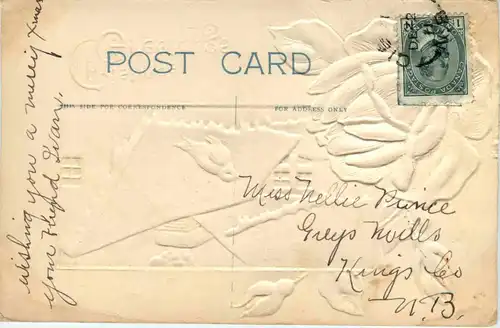 POST CARD
THIS SIDE FOR CORRESPONDENCE
FOR ADDRESS ONLY
wishing you a merry Xmas
your friend
Miss Nellie Prince
Greys Mills
Kings Co
N.B.